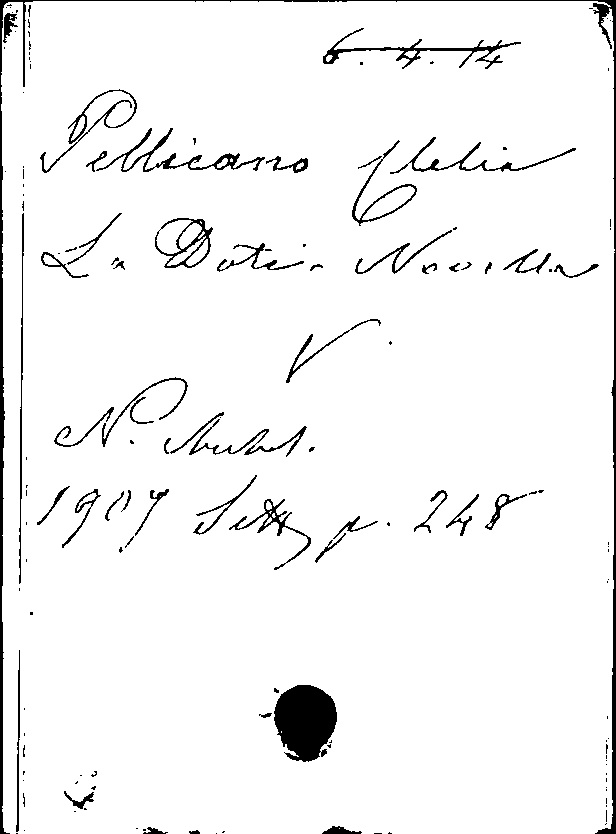 6. 4. 14
Pellicano Clelia
La Dote. Novella
V.
N. Antol.
1907 Sett p. 248